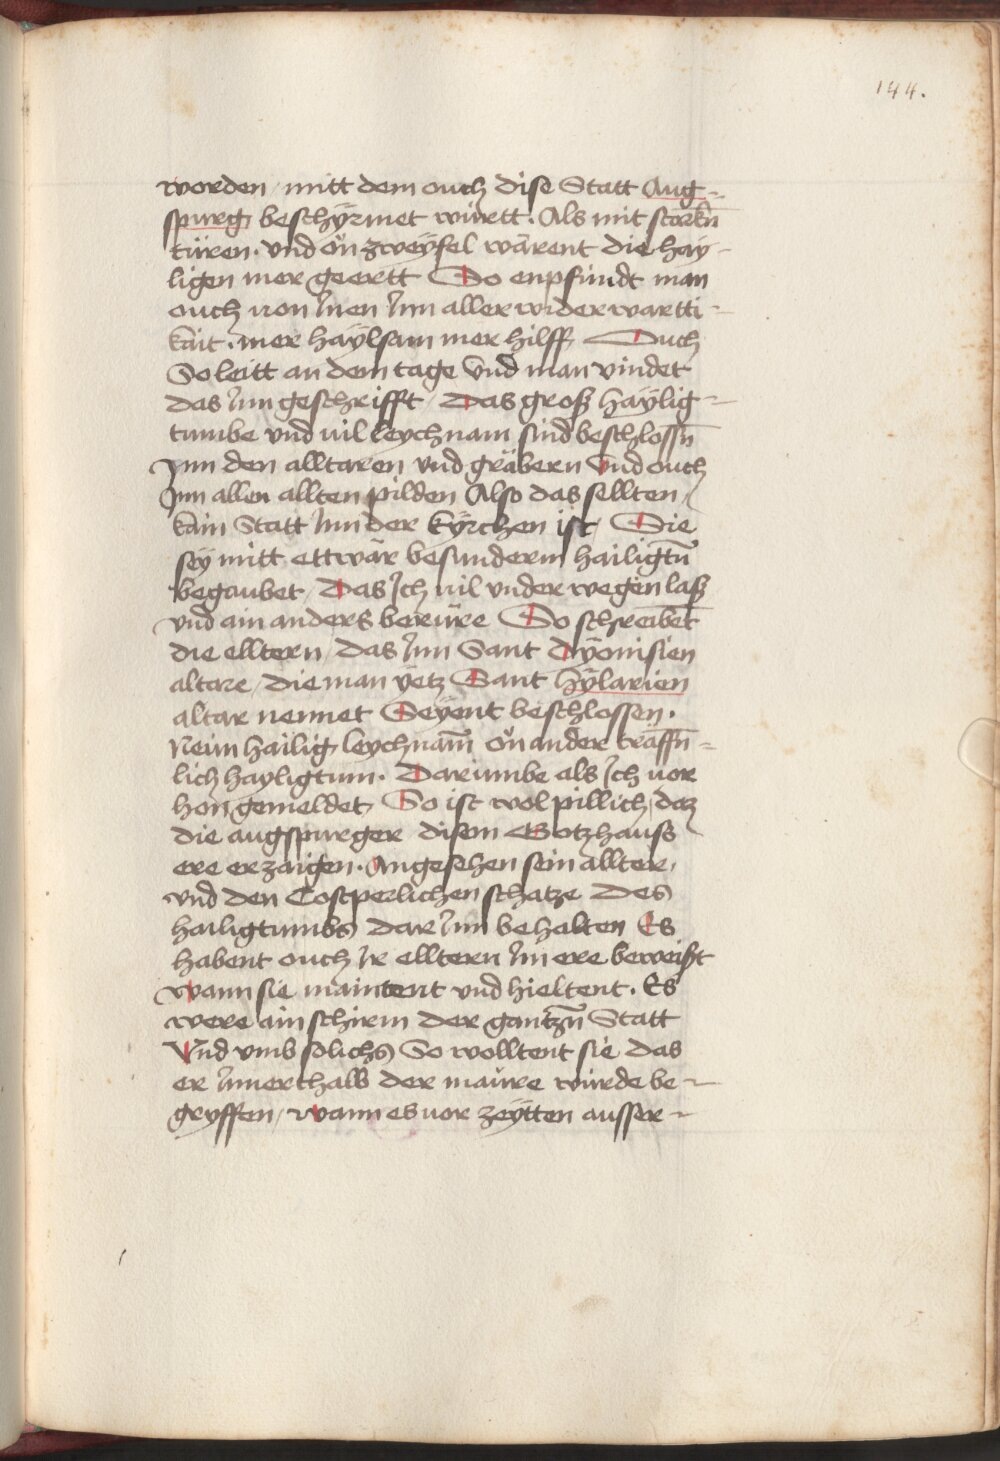 144.
worden / mitt dem ouch dise Statt Aug=
spurg beschÿrmet wúrtt. Als mit starkñ
túren. vnd on̄ zweÿfel wärent die haÿ-
ligen mer geertt So enpfúndt man
ouch von Inen Inn aller widerwartti-
kait. mer haÿlsam mer hilff Ouch
So leitt an dem tage Vnd man vindet
das Inn geschrifft / Das groß haÿlig-
tumbe vnd vil leychnam sind beschlossñ
Inn den alltaren vnd gräbern Vnd ouch
Inn allen allten pilden Also das sellten /
kain Statt Inn der kÿrchen ist / Sie
seÿ mitt ettwär besunderm hailigtū
begaubet / Das Ich vil vnder wegen laß
vnd ain anders berüre So schreibet
die elltern / das Inn Sant dÿonisien
altare / die man ÿetz Sant hÿlarien
altar nennet Seÿent beschlossen.
Neun hailig leychnam̄ on̄ ander träffñ-
lich hayligtum. Darumbe als Ich vor
hon gemeldet So ist wol pillich / daz
die augspurger disem Gotzhauss
ere erzaigen. Angesehen sein allter,
vnd den Costperlichen schatze Des
hailigtumbs dar Inn behalten Es
habent ouch Ir elltern Im ere beweist
wann sie maintent vnd hieltent. Es
were ain schirm der gantzñ Statt
Vnd vmb solichs So wolltent sie das
er Innerthalb der maure wúrde be-
gryffen / wann es vor zeÿtten ausser-